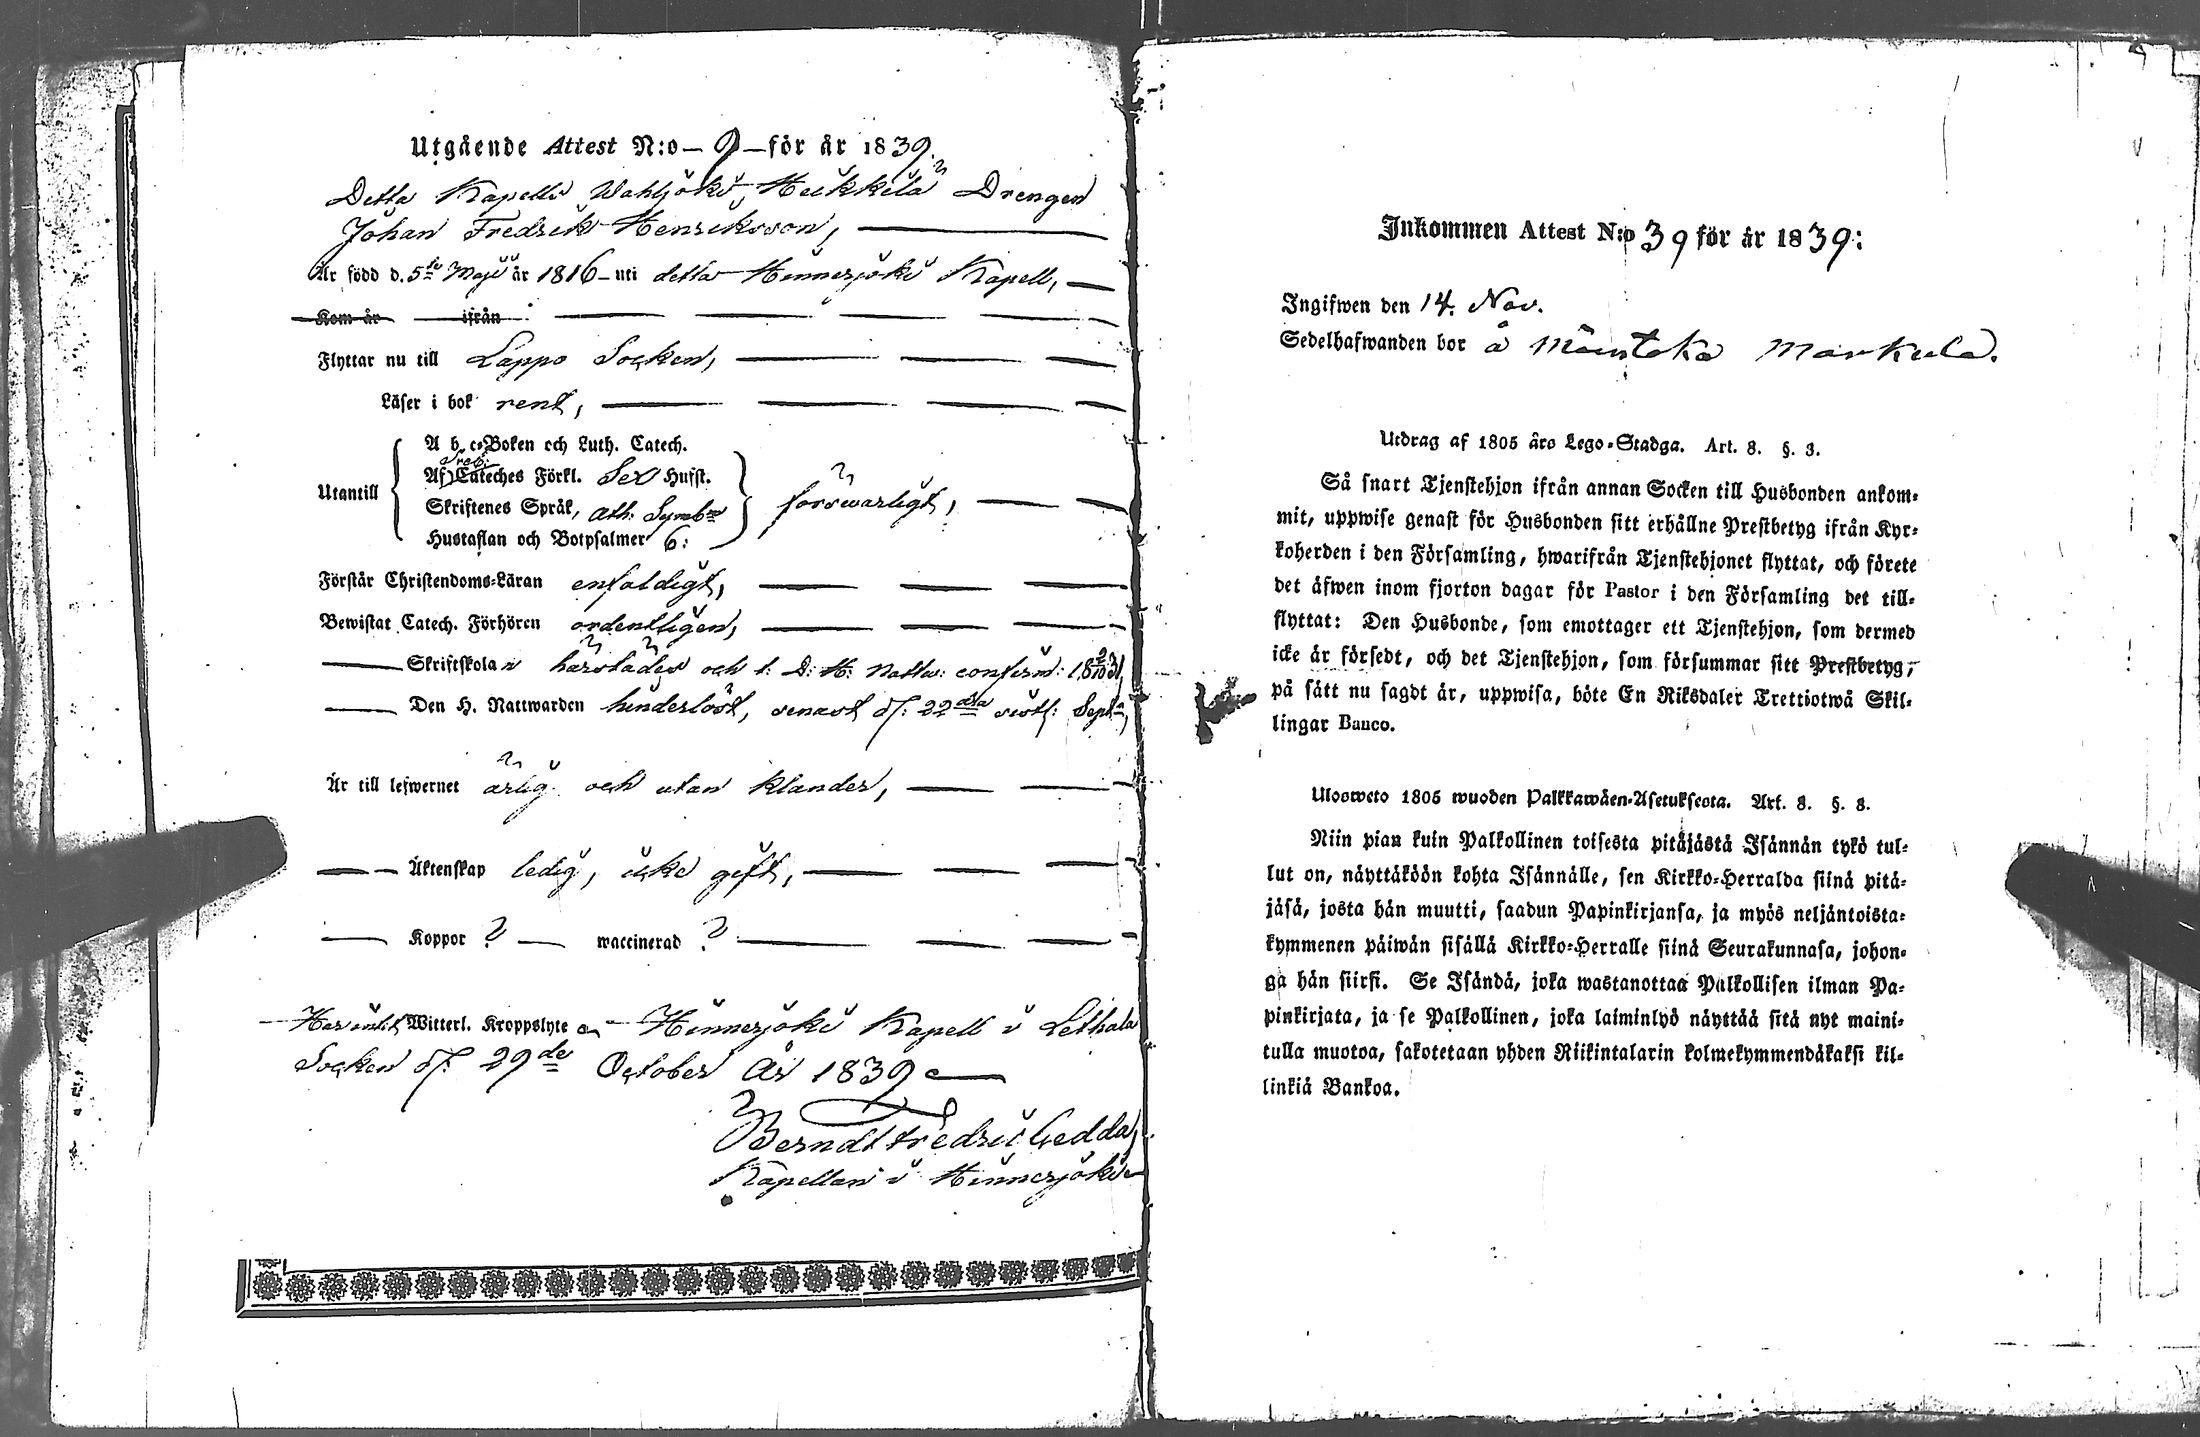 Utgående Attest N:o — 9 — för år 1839.
Detta Kapells Wahljoki, Heikkilä Drengen
Johan Fredrik Henriksson,
Är född d. 5te Maji år 1816 — uti detta Hinnerjoki Kapell,
Kom år ifrån
Flyttar nu till Lappo Socken,
Läser i bok rent,
A b c-Boken och Luth. Catech.
Af Sveb. Cateches Förkl. Sex Hufst.
Utantill
Skriftenes Språk, Ath: Symb:
försvarligt,
Hustaflan och Botpsalmer 6:
Förstår Christendoms-Läran enfaldigt,
Bewistat Catech. Förhören ordentligen,
Skriftskola och t: D: H: Nattv: confirm: 18 31,
Den H. Nattwarden hinderlöst, senast d: 22dra sistl: Sept:
Är till lefwernet ärlig och utan klander,
Äktenskap ledig, icke gift,
Koppor ? — waccinerad ?
Har intet Witterl. Kroppslyte Hinnerjoki Kapell i Lethala
Socken d: 29de October År 1839
Berndt Fredric Gedda,
Kapellan i Hinnerjoki
Inkommen Attest N:o 39 för år 1839:
Ingifwen den 14. Nov.
Sedelhafwanden bor å Mäntaka Markula.
Utdrag af 1805 års Lego-Stadga. Art. 8. §. 3.
Så snart Tjenstehjon ifrån annan Socken till Husbonden ankom-
mit, uppwise genast för Husbonden sitt erhållne Prestbetyg ifrån Kyr-
koherden i den Församling, hwarifrån Tjenstehjonet flyttat, och förete
det äfwen inom fjorton dagar för Pastor i den Församling det till-
flyttat: Den Husbonde, som emottager ett Tjenstehjon, som dermed
icke är försedt, och det Tjenstehjon, som försummar sitt Prestbetyg,
på sätt nu sagdt är, uppwisa, böte En Riksdaler Trettiotwå Skil-
lingar Banco.
Ulosweto 1805 wuoden Palkkawäen-Asetuksesta. Art. 8. §. 8.
Niin pian kuin Palkollinen toisesta pitäjästä Isännän tykö tul-
lut on, näyttäköön kohta Isännälle, sen Kirkko-Herralda siinä pitä-
jäsä, josta hän muutti, saadun Papinkirjansa, ja myös neljäntoista-
kymmenen päiwän sisällä Kirkko-Herralle siinä Seurakunnasa, johon-
ga hän siirsi. Se Isändä, joka wastanottaa Palkollisen ilman Pa-
pinkirjata, ja se Palkollinen, joka laiminlyö näyttää sitä nyt maini-
tulla muotoa, sakotetaan yhden Riikintalarin kolmekymmendäkaksi kil-
linkiä Bankoa.